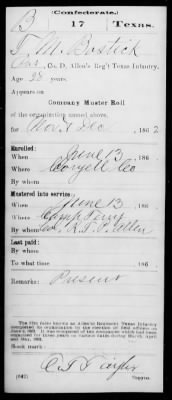 (Confederate.)
B 17 Texas.
T. M. Bostick
Co. D, Allen's Reg't Texas Infantry.
Age 28 years.
Appears on
Company Muster Roll
of the organization named above,
for Nov. & Dec, 1862
Enrolled:
When June 13, 186
Where Coryell Co
By whom
Mustered into service:
When June 13, 186
Where Camp Terry
By whom R. T. P. Allen
Last paid:
By whom
To what time, 186
Remarks: Present
Book mark:
(642) Copyist.